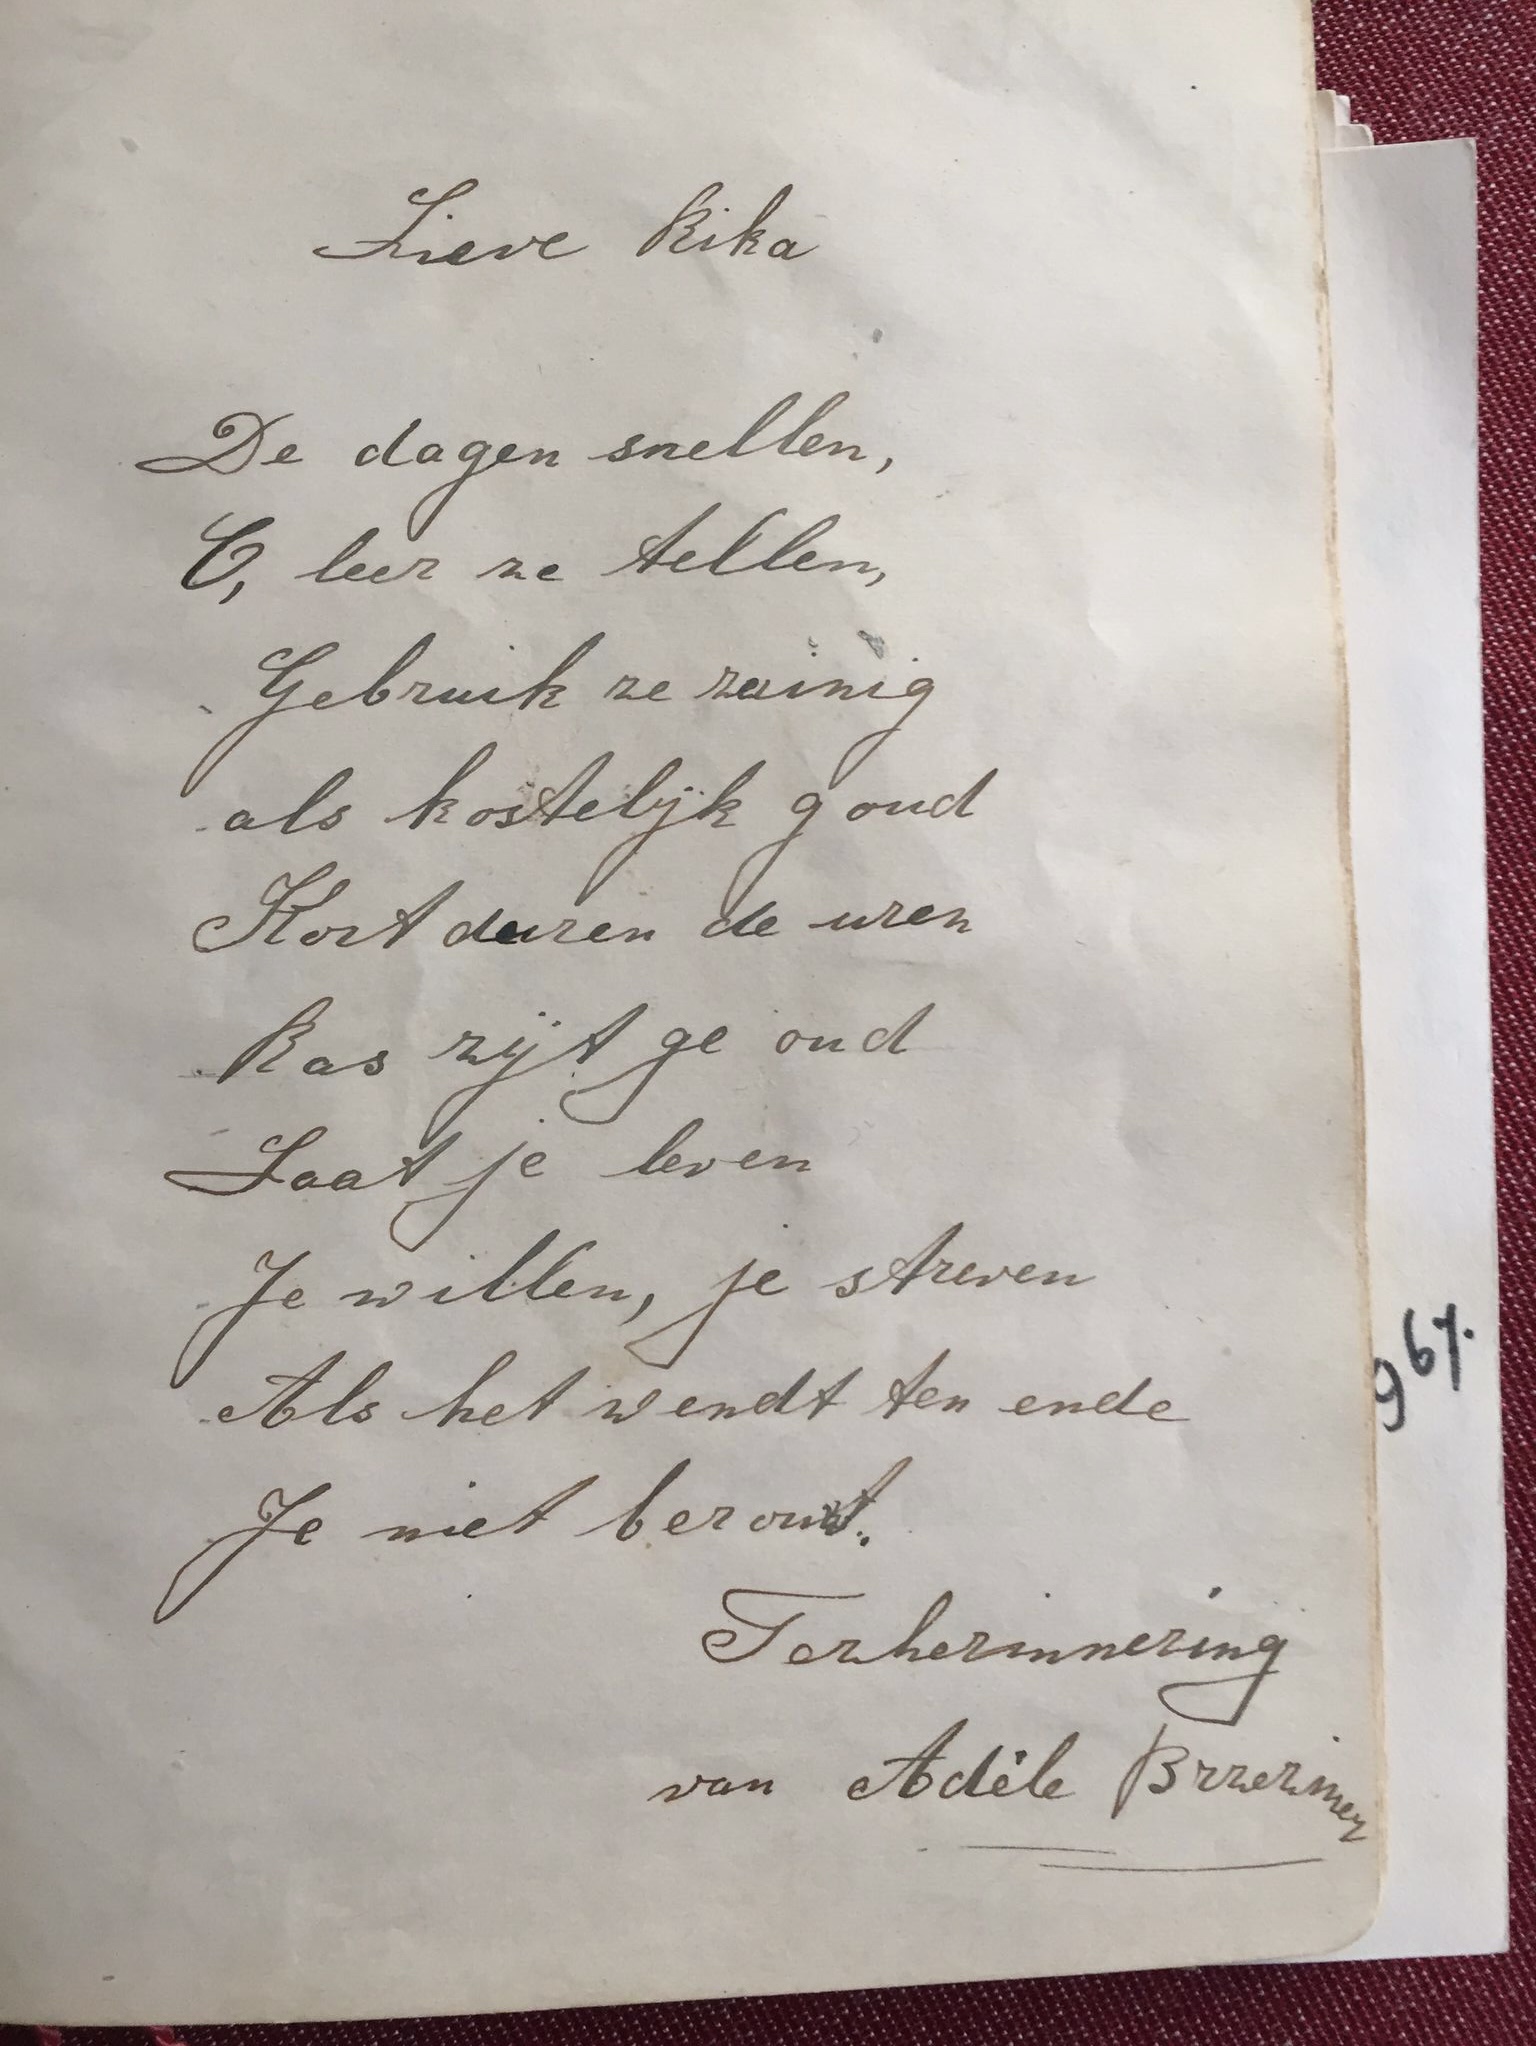 Lieve Rika
De dagen snellen,
O, leer ze tellen,
Gebruik ze zuinig
als kostelijk goud
Kort duren de uren
Ras zijt ge oud
Laat je leven
Je willen, je streven
Als het wendt ten ende
Je niet berouwt.
Terherinnering
van Adèle
967.